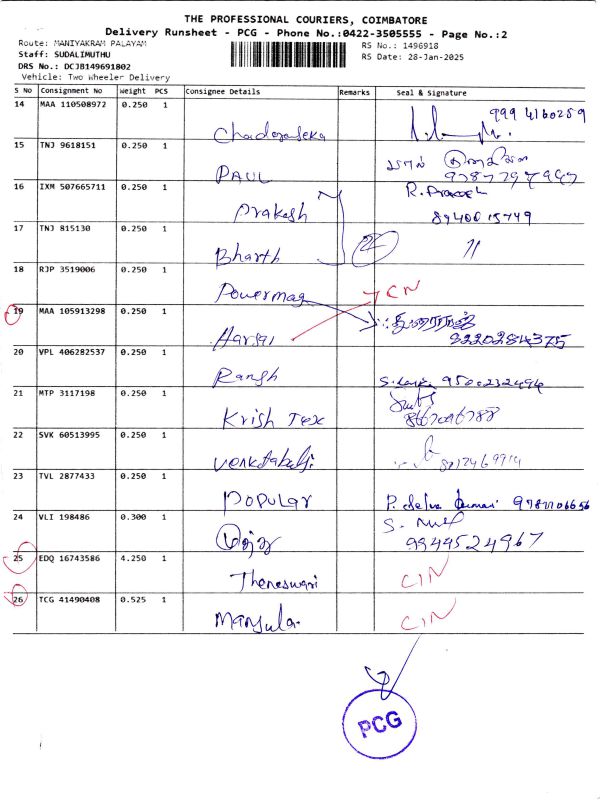 THE PROFESSIONAL COURIERS, COIMBATORE
Delivery Runsheet - PCG - Phone No.:0422-3505555 - Page No.:2
Route: MANIYAKRAM PALAYAM
Staff: SUDALIMUTHU
DRS No.: DCJB149691802
Vehicle: Two Wheeler Delivery
RS No.: 1496918
RS Date: 28-Jan-2025
S No Consignment No Weight PCS Consignee Details Remarks Seal & Signature
14 MAA 110508972 0.250 1
999 4160259
15 TNJ 9618151 0.250 1 PAUL
16 IXM 507665711 0.250 1 Prakesh
8940015749
17 TNJ 815130 0.250 1 Bharth "
18 RJP 3519006 0.250 1 Powermag CN
19 MAA 105913298 0.250 1
8220284375
20 VPL 406282537 0.250 1
21 MTP 3117198 0.250 1 Krish Tex
22 SVK 60513995 0.250 1
23 TVL 2877433 0.250 1 POPULAR
24 VLI 198486 0.300 1
9949524967
25 EDQ 16743586 4.250 1 Theneswari CIN
26 TCG 41490408 0.525 1 Manjula CIN
PCG